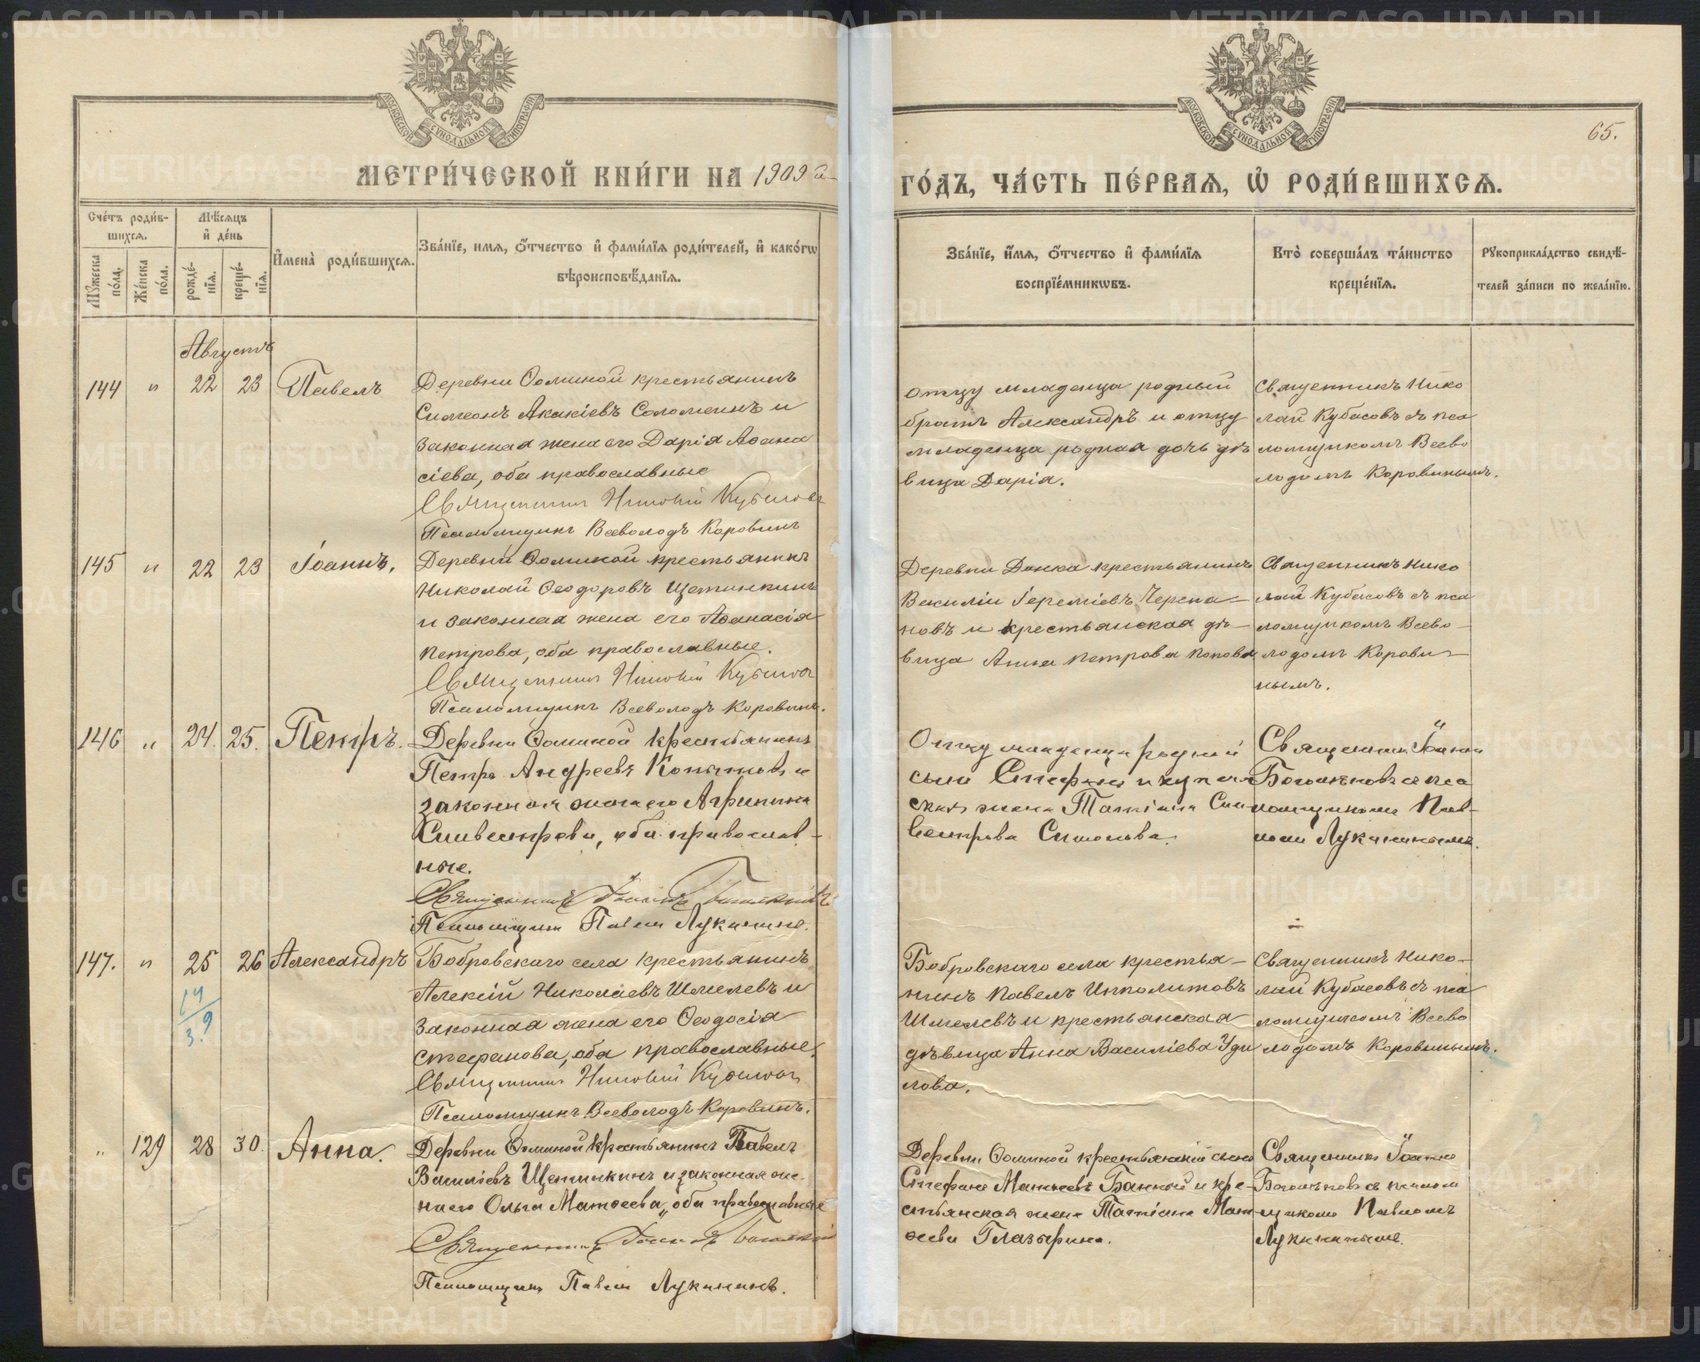 МЕТРИ́ЧЕСКОЙ КНИ́ГИ НА 1909 й
ГО́ДЪ, ЧА́СТЬ ПЕ́РВАѦ, Ѡ̓ РОДИ́ВШИХСѦ.
65.
Сче́тъ роди́в-
шихсѧ.
Мѣ́сѧцъ
и҆ де́нь
И҆мена̀ роди́вшихсѧ.
Зва́нїе, имѧ, ѻ҆́тчество и҆ фами́лїѧ роди́телей, и҆ како́гѡ
вѣроисповѣ́данїѧ.
Мꙋ́жеска по́ла.
Же́нска по́ла.
рожде́-нїѧ.
креще́-нїѧ.
Зва́нїе, и҆́мѧ, ѻ҆́тчество и҆ фами́лїѧ
воспрїе́мникѡвъ.
Кто̀ соверша́лъ та́инство
креще́нїѧ.
Рꙋкоприкла́дство свидѣ́-
телей за́писи по жела́нїю.
Августъ
144 " 22 23 Павелъ
Деревни Ѳоминой крестьянинъ
Симеонъ Акакіевъ Соломеинъ и
законная жена его Дарія Аѳана
сіева, оба православные
Священникъ Николай Кубасовъ
Псаломщикъ Всеволодъ Коровинъ
отцу младенца родный
братъ Александръ и отцу
младенца родная дочь дѣ
вица Дарія.
Священникъ Нико
лай Кубасовъ съ пса
ломщикомъ Всево
лодомъ Коровинымъ.
145 " 22 23 Іоаннъ.
Деревни Ѳоминой крестьянинъ
Николай Ѳеодоровъ Щетинкинъ
и законная жена его Аѳанасія
Петрова, оба православные.
Священникъ Николай Кубасовъ
Псаломщикъ Всеволодъ Коровинъ.
Деревни Донка крестьянинъ
Василій Іереміевъ Черепа-
новъ и крестьянская дѣ-
вица Анна Петрова Попова
Священникъ Нико
лай Кубасовъ съ пса
ломщикомъ Всево-
лодомъ Корови-
нымъ.
146 " 24. 25. Петръ.
Деревни Ѳоминой крестьянинъ
Петръ Андреевъ Копытовъ и
законная жена его Агрипина
Сильвестрова, оба православ-
ные.
Священникъ Іоаннъ
Псаломщикъ Павелъ Лукининъ.
Отцу младенца родный
сынъ Стефанъ и
жена Татіана Сил
вестрова Симонова.
Священникъ Іоаннъ
съ пса
ломщикомъ Пав-
ломъ Лукининымъ.
147. " 25 26 Александръ
14/3.9
Бобровскаго села крестьянинъ
Алексій Николаевъ Шмелевъ и
законная жена его Ѳеодосія
Стефанова, оба православные.
Священникъ Николай Кубасовъ
Псаломщикъ Всеволодъ Коровинъ.
Бобровскаго села крестья-
нинъ Павелъ Ипполитовъ
Шмелевъ и крестьянская
дѣвица Анна Василіева Уди
лова.
Священникъ Нико-
лай Кубасовъ съ пса
ломщикомъ Всево
лодомъ Коровинымъ.
" 129 28 30. Анна.
Деревни Ѳоминой крестьянинъ Павелъ
Василіевъ Щетинкинъ и законная же-
на его Ольга Матѳеева, оба православные
Священникъ Іоаннъ
Псаломщикъ Павелъ Лукининъ.
Деревни Ѳоминой крестьянскій сынъ
Стефанъ Матѳеевъ и кре-
стьянская жена Татіана Мат
ѳеева Глазырина.
Священникъ Іоаннъ
съ псалом
щикомъ Павломъ
Лукининымъ.
METRIKI.GASO-URAL.RU